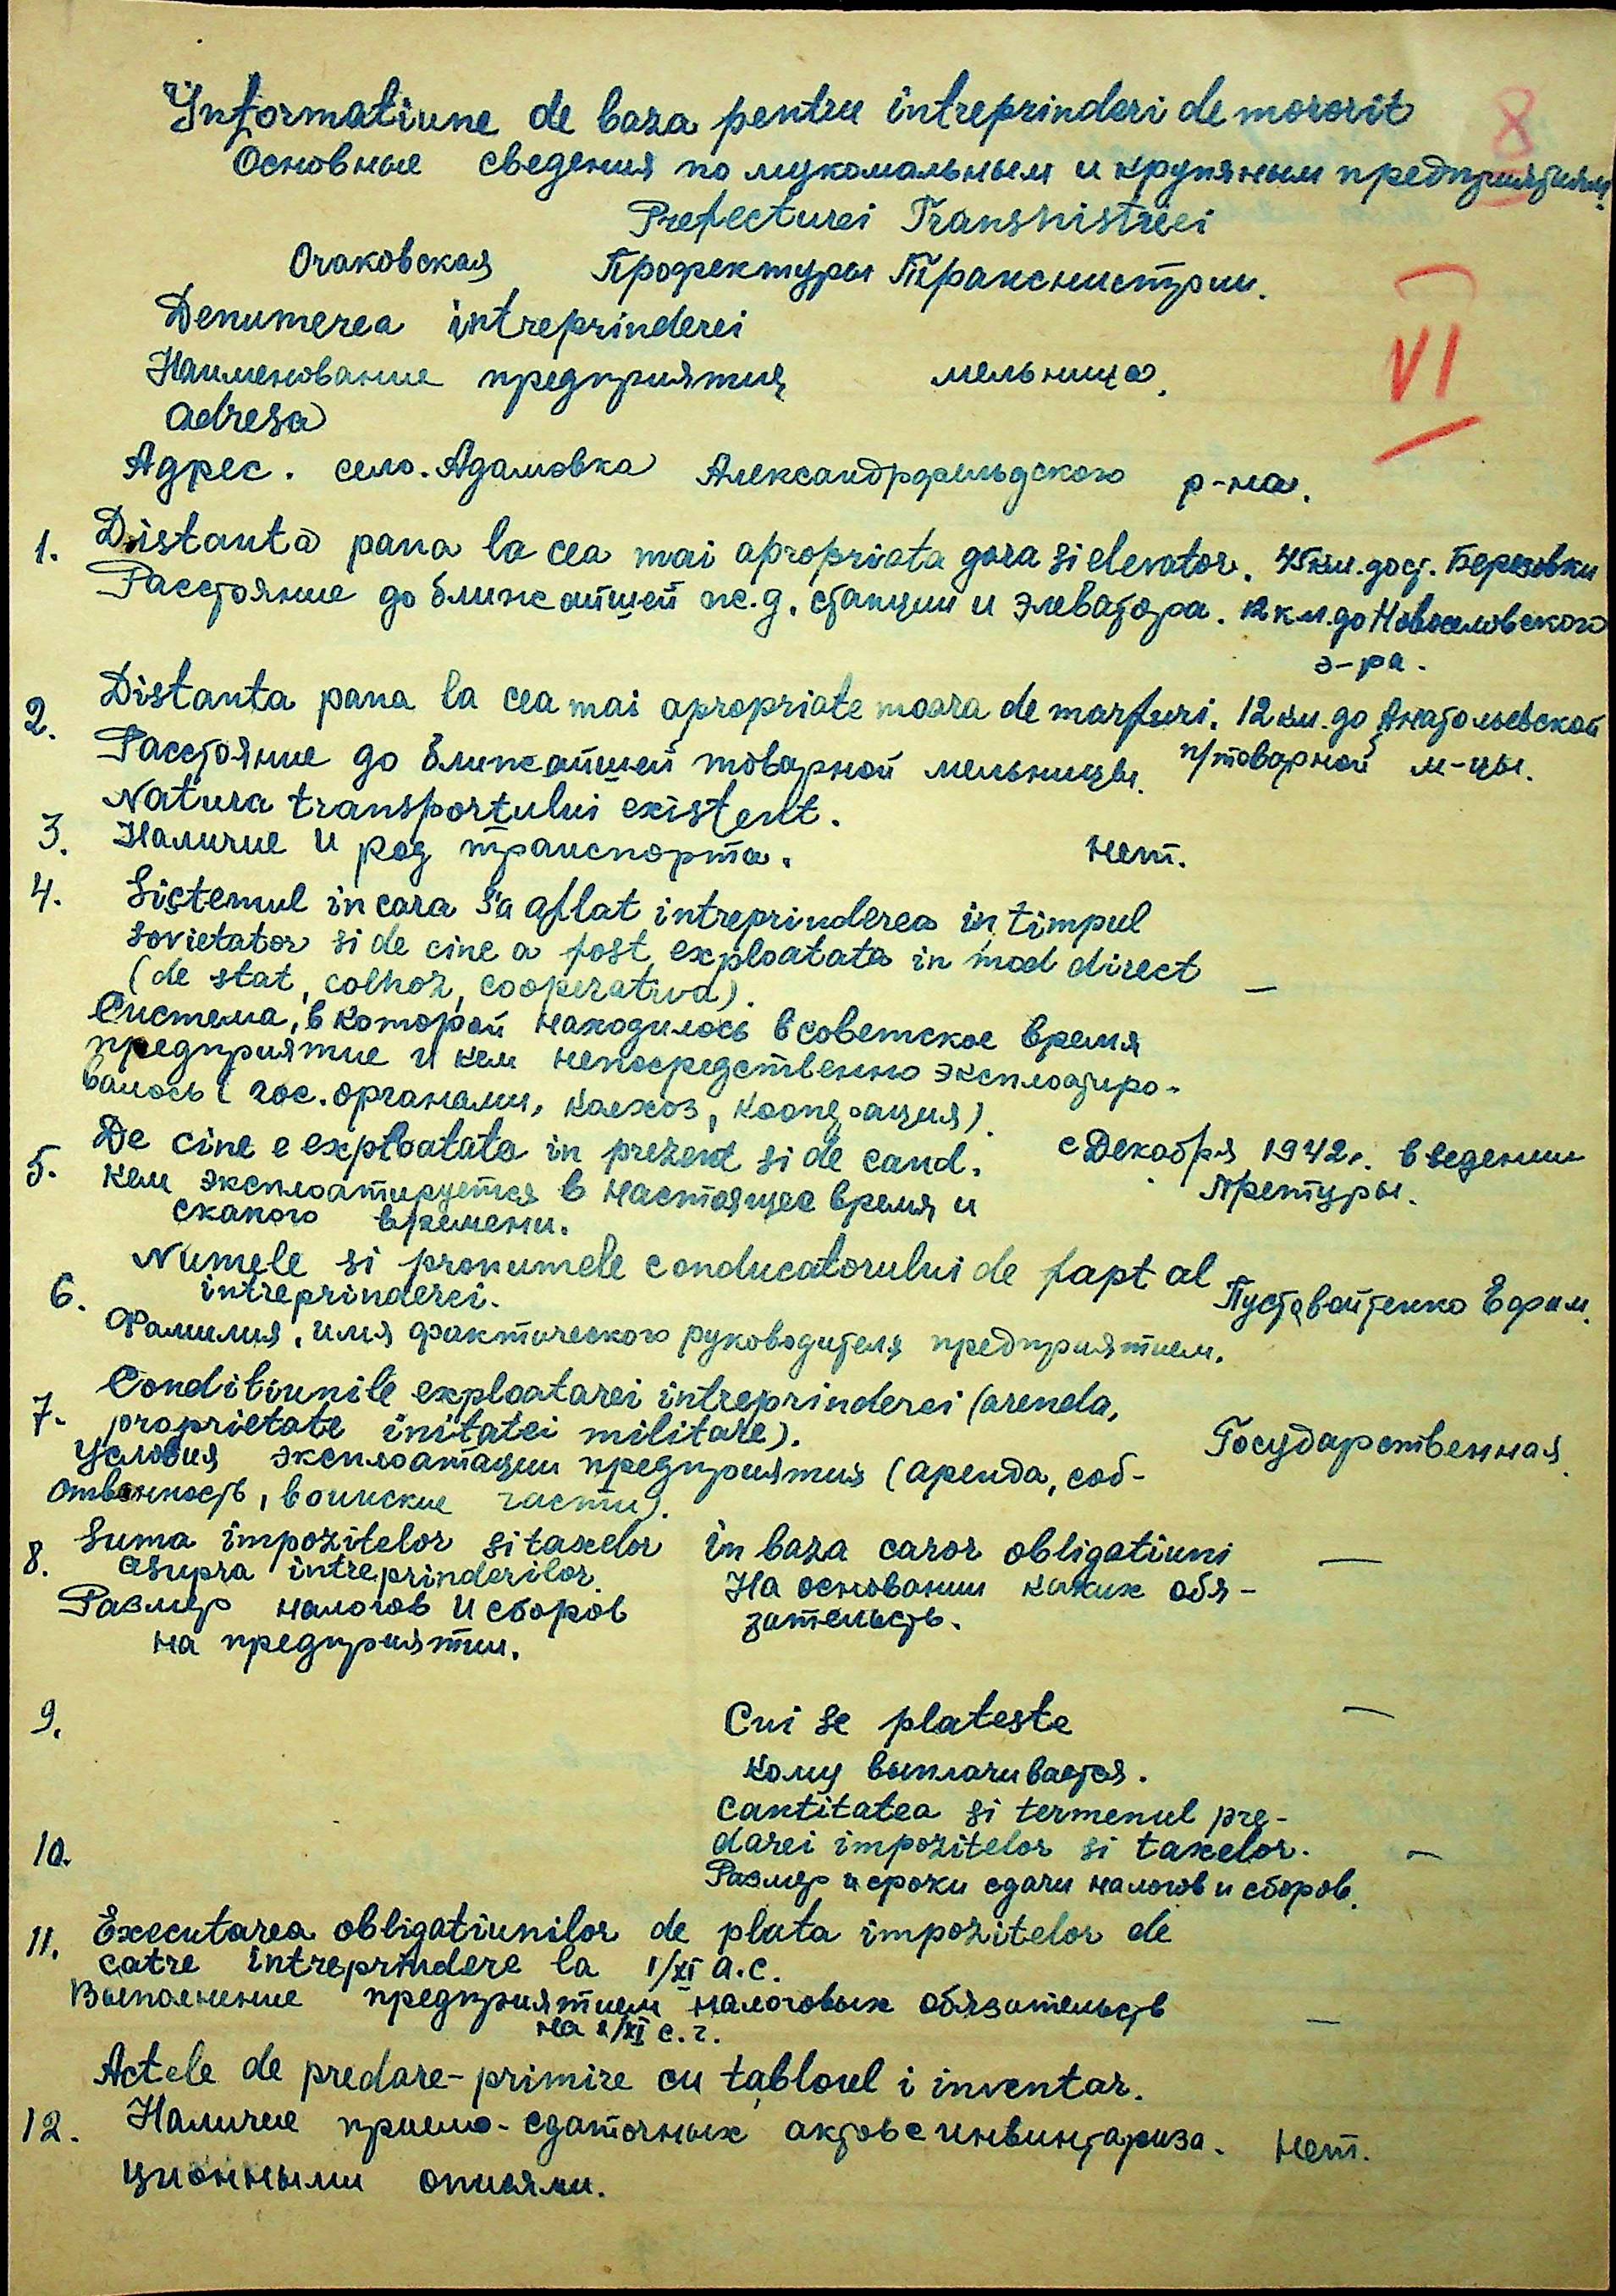 Informatiune de baza pentru intreprinderi de mororit
8
Основные сведения по мукомальным и крупяным предприятиям.
Prefecturei Transnistriei
Очаковская Профектуры Транснистрии.
Denumerea intreprinderei
Наименование предприятия мельница.
VI
adresa
Адрес. село. Адамовка Александрфельдского р-на.
1. Distanta pana la cea mai apropriata gara si elevator. 45 км. до ст. Березовки
Расстояние до ближайшей ж.д. станции и элеватора. 12 км. до Новоселовского
э-ра.
2. Distanta pana la cea mai apropriate moara de marfuri. 12 км. до Анатольевской
Расстояние до ближайшей товарной мельницы. п/товарной м-цы.
Natura transportului existent.
3. Наличие и род транспорта. нет.
4. Sistemul in cara s'a aflat intreprinderea in timpul
sovietator si de cine a fost exploatata in mod direct —
(de stat, colhoz, cooperativa).
Система, в которой находилось в советское время
предприятие и кем непосредственно эксплоатиро-
валось (гос. органами, колхоз, кооперация).
5. De cine e exploatata in prezent si de cand. с Декабря 1942 г. в ведении
Кем эксплоатируется в настоящее время и Претуры.
скакого времени.
6. Numele si pronumele conducatorului de fapt al
intreprinderei. Пуставойтенко Ефим.
Фамилия, имя фактического руководителя предприятием.
7. Conditiunile exploatarei intreprinderei (arenda,
proprietate initatei militare). Государственная.
Условия эксплоатации предприятия (аренда, соб-
ственность, воинские части).
8. Suma impozitelor si taxelor in baza caror obligatiuni —
asupra intreprinderilor. На основании каких обя-
Размер налогов и сборов зательств.
на предприятии.
9. Cui se plateste —
Кому выплачивается.
Cantitatea si termenul pre-
10. darei impozitelor si taxelor. —
Размер и сроки сдачи налогов и сборов.
11. Executarea obligatiunilor de plata impozitelor de
catre intreprindere la 1/XI a.c.
Выполнение предприятием налоговых обязательств —
на 1/XI с.г.
Actele de predare-primire cu tabloul i inventar.
12. Наличие приемо-сдаточных актов с инвинтариза- нет.
ционными описями.